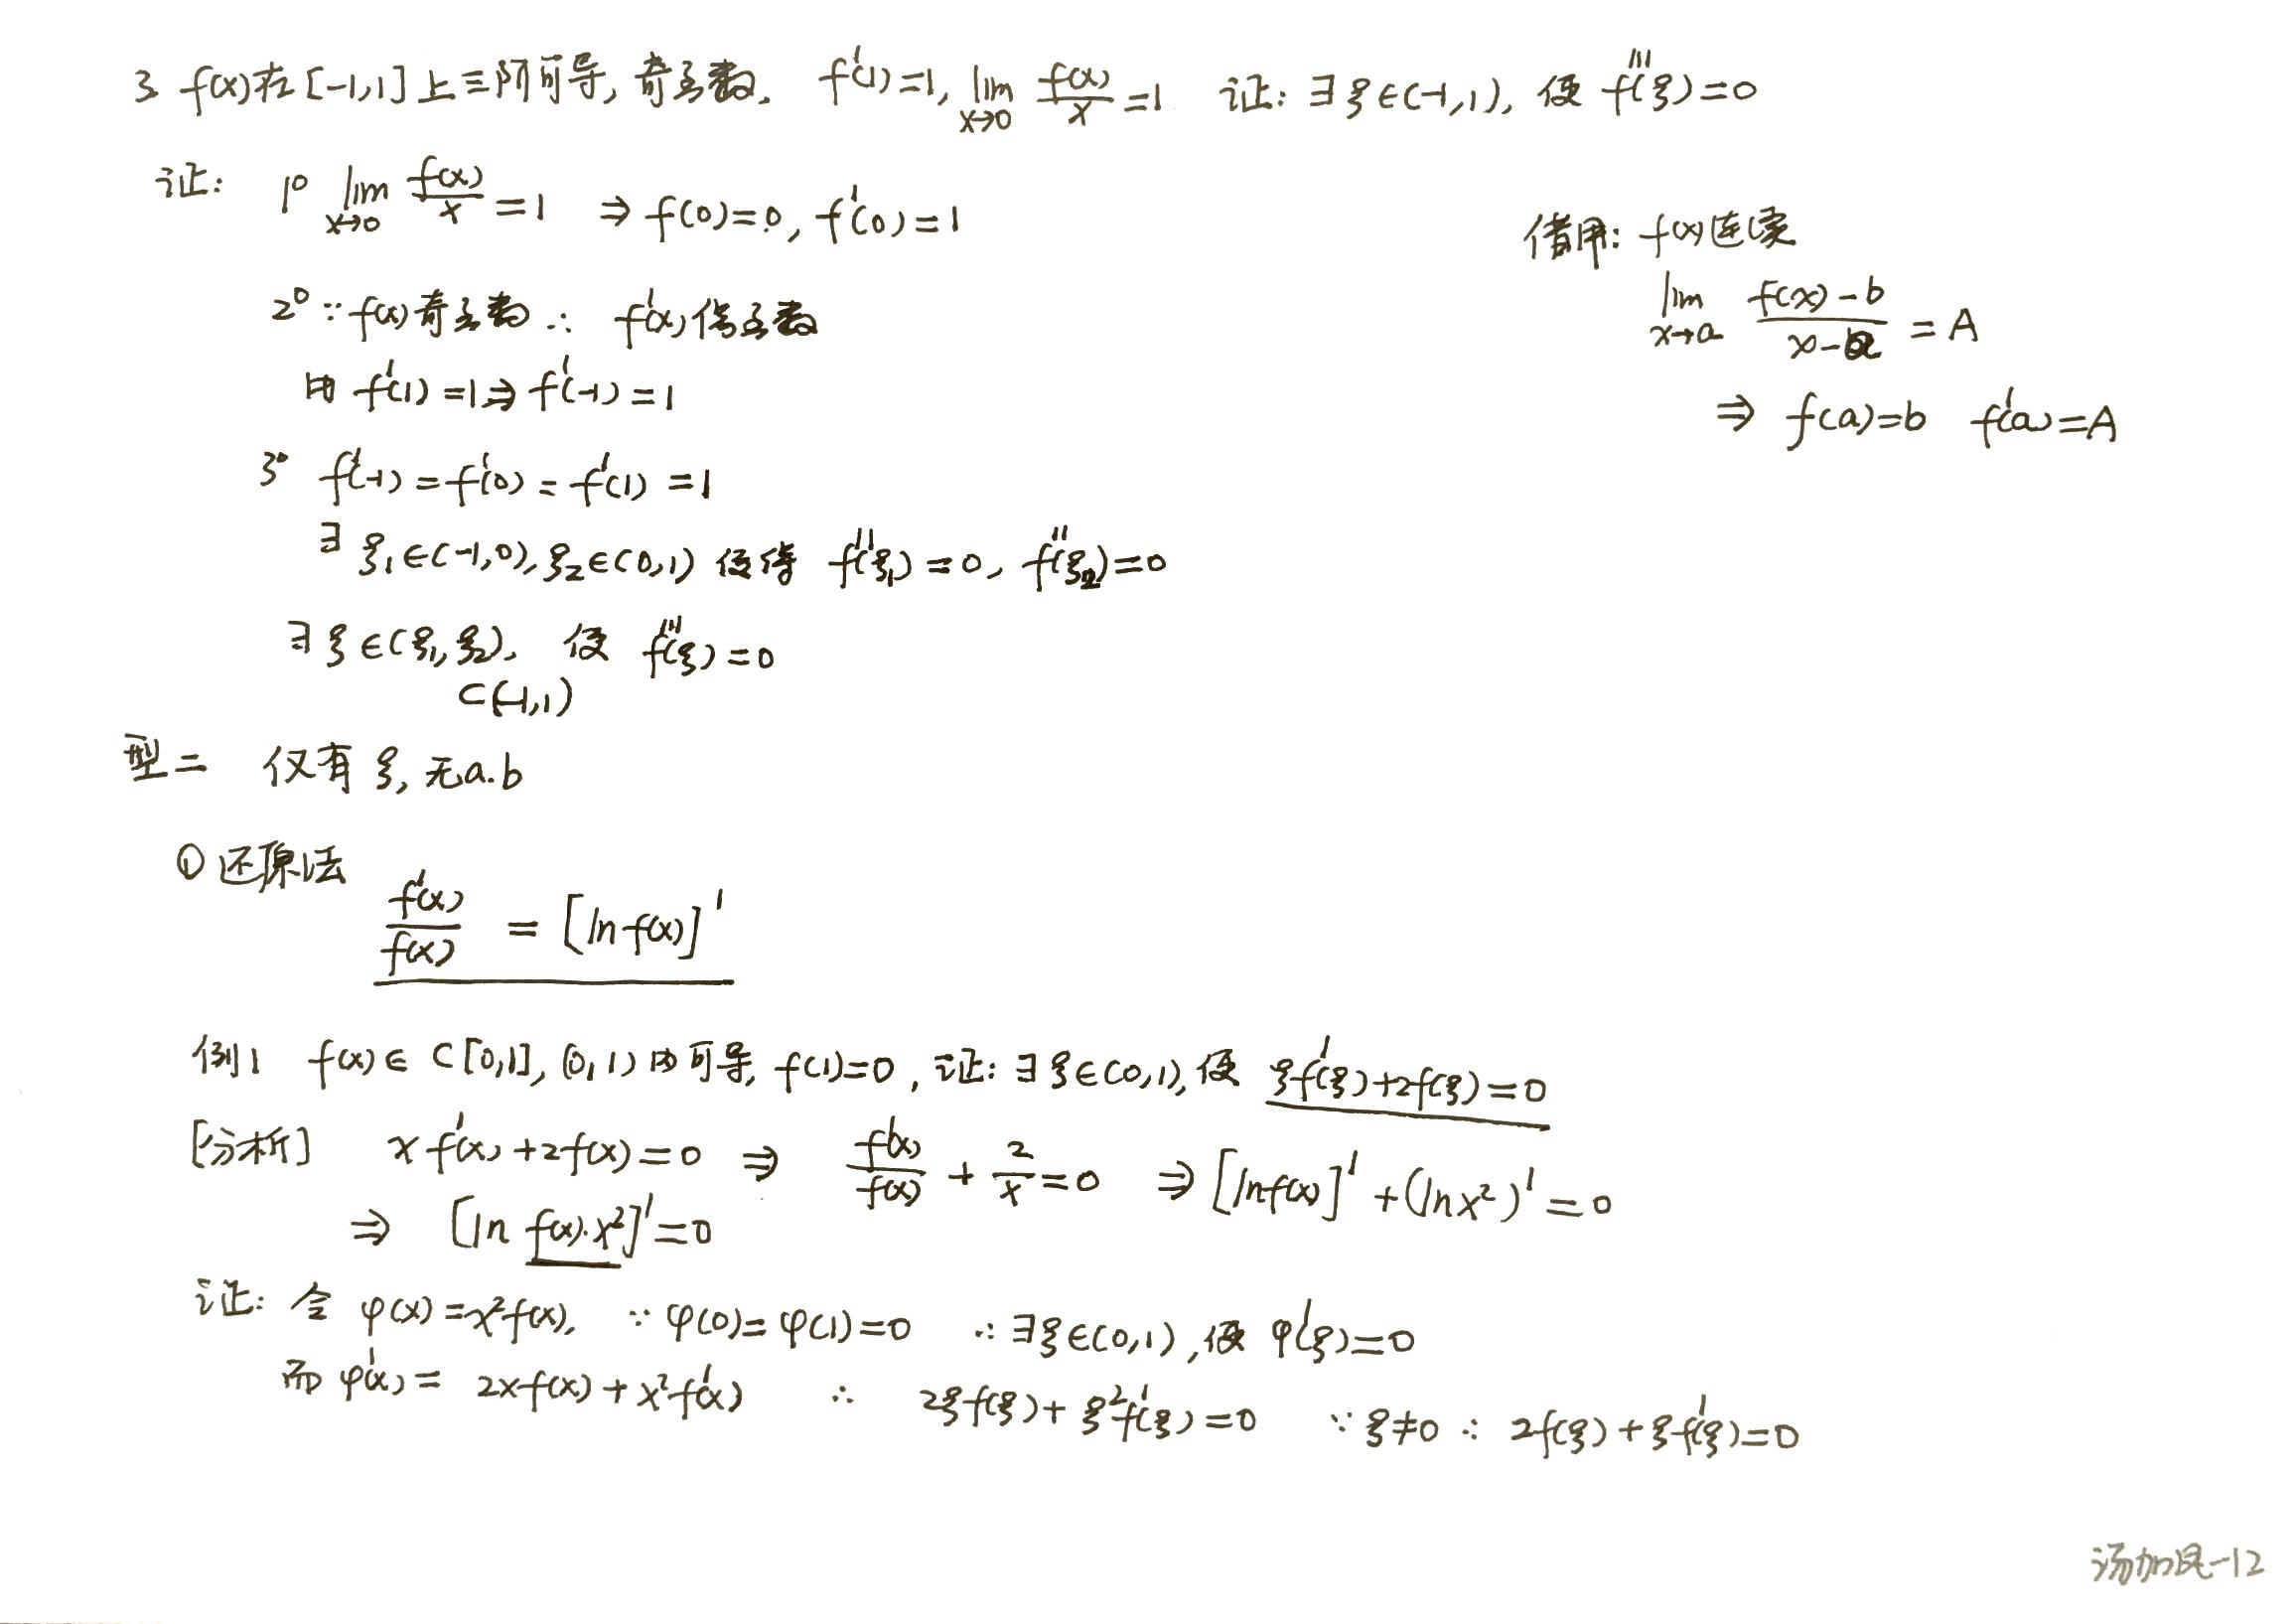 3 f(x)在[-1,1]上三阶可导, 奇函数, f'(1)=1, lim_{x→0} f(x)/x =1 证: ∃ξ∈(-1,1), 使 f'''(ξ)=0
证: 1° lim_{x→0} f(x)/x =1 ⇒ f(0)=0, f'(0)=1
借用: f(x)连续
lim_{x→a} (f(x)-b)/(x-a) = A
⇒ f(a)=b f'(a)=A
2° ∵ f(x)奇函数 ∴ f'(x)偶函数
由 f'(1)=1 ⇒ f'(-1)=1
3° f'(-1)=f'(0)=f'(1)=1
∃ ξ₁∈(-1,0), ξ₂∈(0,1) 使得 f''(ξ₁)=0, f''(ξ₂)=0
∃ξ∈(ξ₁,ξ₂), 使 f'''(ξ)=0
⊂(-1,1)
型二 仅有ξ, 无a.b
① 还原法
f'(x)/f(x) = [ln f(x)]'
例1 f(x)∈C[0,1], (0,1)内可导, f(1)=0, 证: ∃ξ∈(0,1), 使 ξf'(ξ)+2f(ξ)=0
[分析] xf'(x)+2f(x)=0 ⇒ f'(x)/f(x) + 2/x =0 ⇒ [lnf(x)]' + (lnx²)' =0
⇒ [ln f(x)·x²]'=0
证: 令 φ(x)=x²f(x), ∵ φ(0)=φ(1)=0 ∴ ∃ξ∈(0,1), 使 φ'(ξ)=0
而 φ'(x)= 2xf(x)+x²f'(x) ∴ 2ξf(ξ)+ξ²f'(ξ)=0 ∵ ξ≠0 ∴ 2f(ξ)+ξf'(ξ)=0
-12